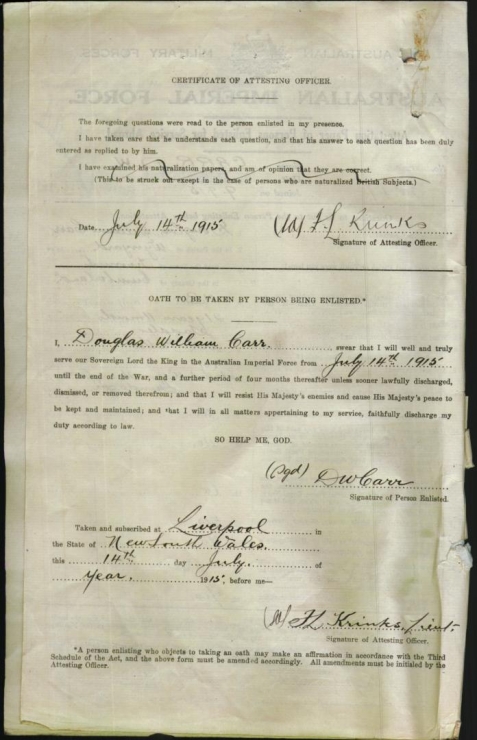 CERTIFICATE OF ATTESTING OFFICER.
The foregoing questions were read to the person enlisted in my presence.
I have taken care that he understands each question, and that his answer to each question has been duly
entered as replied to by him.
I have examined his naturalization papers, and am of opinion that they are correct.
(This to be struck out except in the case of persons who are naturalized British Subjects.)
Date July 14th 1915
F L Krinks
Signature of Attesting Officer.
OATH TO BE TAKEN BY PERSON BEING ENLISTED.*
I, Douglas William Carr swear that I will well and truly
serve our Sovereign Lord the King in the Australian Imperial Force from July 14th 1915
until the end of the War, and a further period of four months thereafter unless sooner lawfully discharged,
dismissed, or removed therefrom; and that I will resist His Majesty's enemies and cause His Majesty's peace to
be kept and maintained; and that I will in all matters appertaining to my service, faithfully discharge my
duty according to law.
SO HELP ME, GOD.
(Sgd) D W Carr
Signature of Person Enlisted.
Taken and subscribed at Liverpool in
the State of New South Wales.
this 14th day July. of
Year. 1915, before me—
F L Krinks, Lieut.
Signature of Attesting Officer.
*A person enlisting who objects to taking an oath may make an affirmation in accordance with the Third
Schedule of the Act, and the above form must be amended accordingly. All amendments must be initialed by the
Attesting Officer.